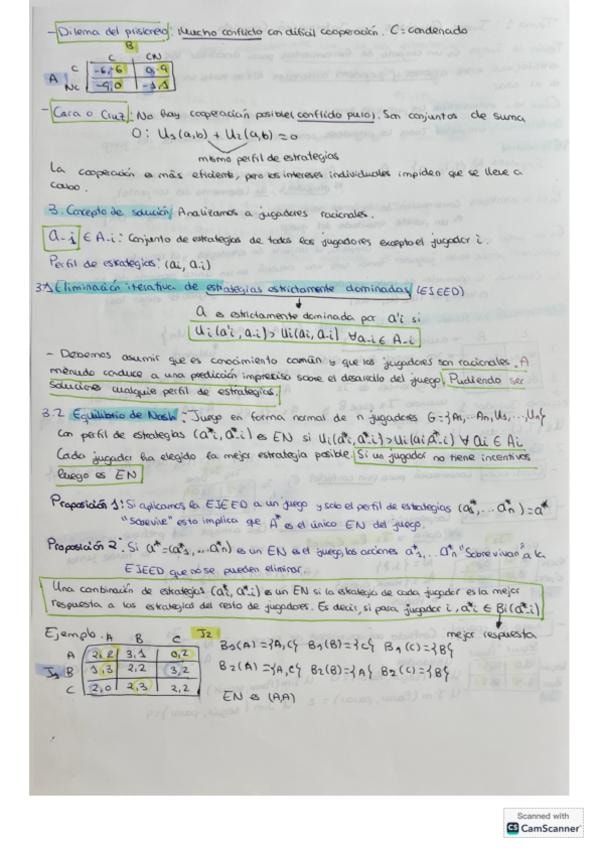 - Dilema del prisionero: Mucho conflicto con difícil cooperación. C = condenado
B
C CN
A C -6,-6 0,-9
NC -9,0 -1,-1
- Cara o Cruz: No hay cooperación posible (conflicto puro). Son conjuntos de suma
0: U1(a,b) + U2(a,b) = 0
mismo perfil de estrategias
La cooperación es más eficiente, pero los intereses individuales impiden que se lleve a
cabo.
3. Concepto de solución: Analizamos a jugadores racionales.
a-i ∈ A-i: Conjunto de estrategias de todos los jugadores excepto el jugador i.
Perfil de estrategias: (ai, a-i)
3.1 Eliminación iterativa de estrategias estrictamente dominadas (EIEED)
a es estrictamente dominada por a'i si
Ui(a'i, a-i) > Ui(ai, a-i) ∀a-i ∈ A-i
- Debemos asumir que es conocimiento común y que los jugadores son racionales. A
menudo conduce a una predicción imprecisa sobre el desarrollo del juego. Pudiendo ser
soluciones cualquier perfil de estrategias.
3.2 Equilibrio de Nash: Juego en forma normal de n jugadores G={A1,...An, U1,...Un}
con perfil de estrategias (a*i, a*-i) es EN si Ui(a*i, a*-i) > Ui(ai, a*-i) ∀ ai ∈ Ai
Cada jugador ha elegido la mejor estrategia posible. Si un jugador no tiene incentivos
luego es EN
Proposición 1: Si aplicamos la EIEED a un juego y solo el perfil de estrategias (a*1,... a*n)=a*
"sobrevive" esto implica que A* es el único EN del juego.
Proposición 2: Si a*=(a*1,...a*n) es un EN es el juego, las acciones a*1,...a*n "Sobreviven" a la
EIEED que no se pueden eliminar.
Una combinación de estrategias (a*i, a*-i) es un EN si la estrategia de cada jugador es la mejor
respuesta a las estrategias del resto de jugadores. Es decir, si para jugador i, a*i ∈ Bi(a*-i)
mejor respuesta
Ejemplo: A B C J2
A 2,2 3,1 0,2
J1 B 1,3 2,2 3,2
C 2,0 2,3 2,2
B1(A)={A,C} B1(B)={C} B1(C)={B}
B2(A)={A,C} B2(B)={A} B2(C)={B}
EN es (A,A)
Scanned with
CS CamScanner